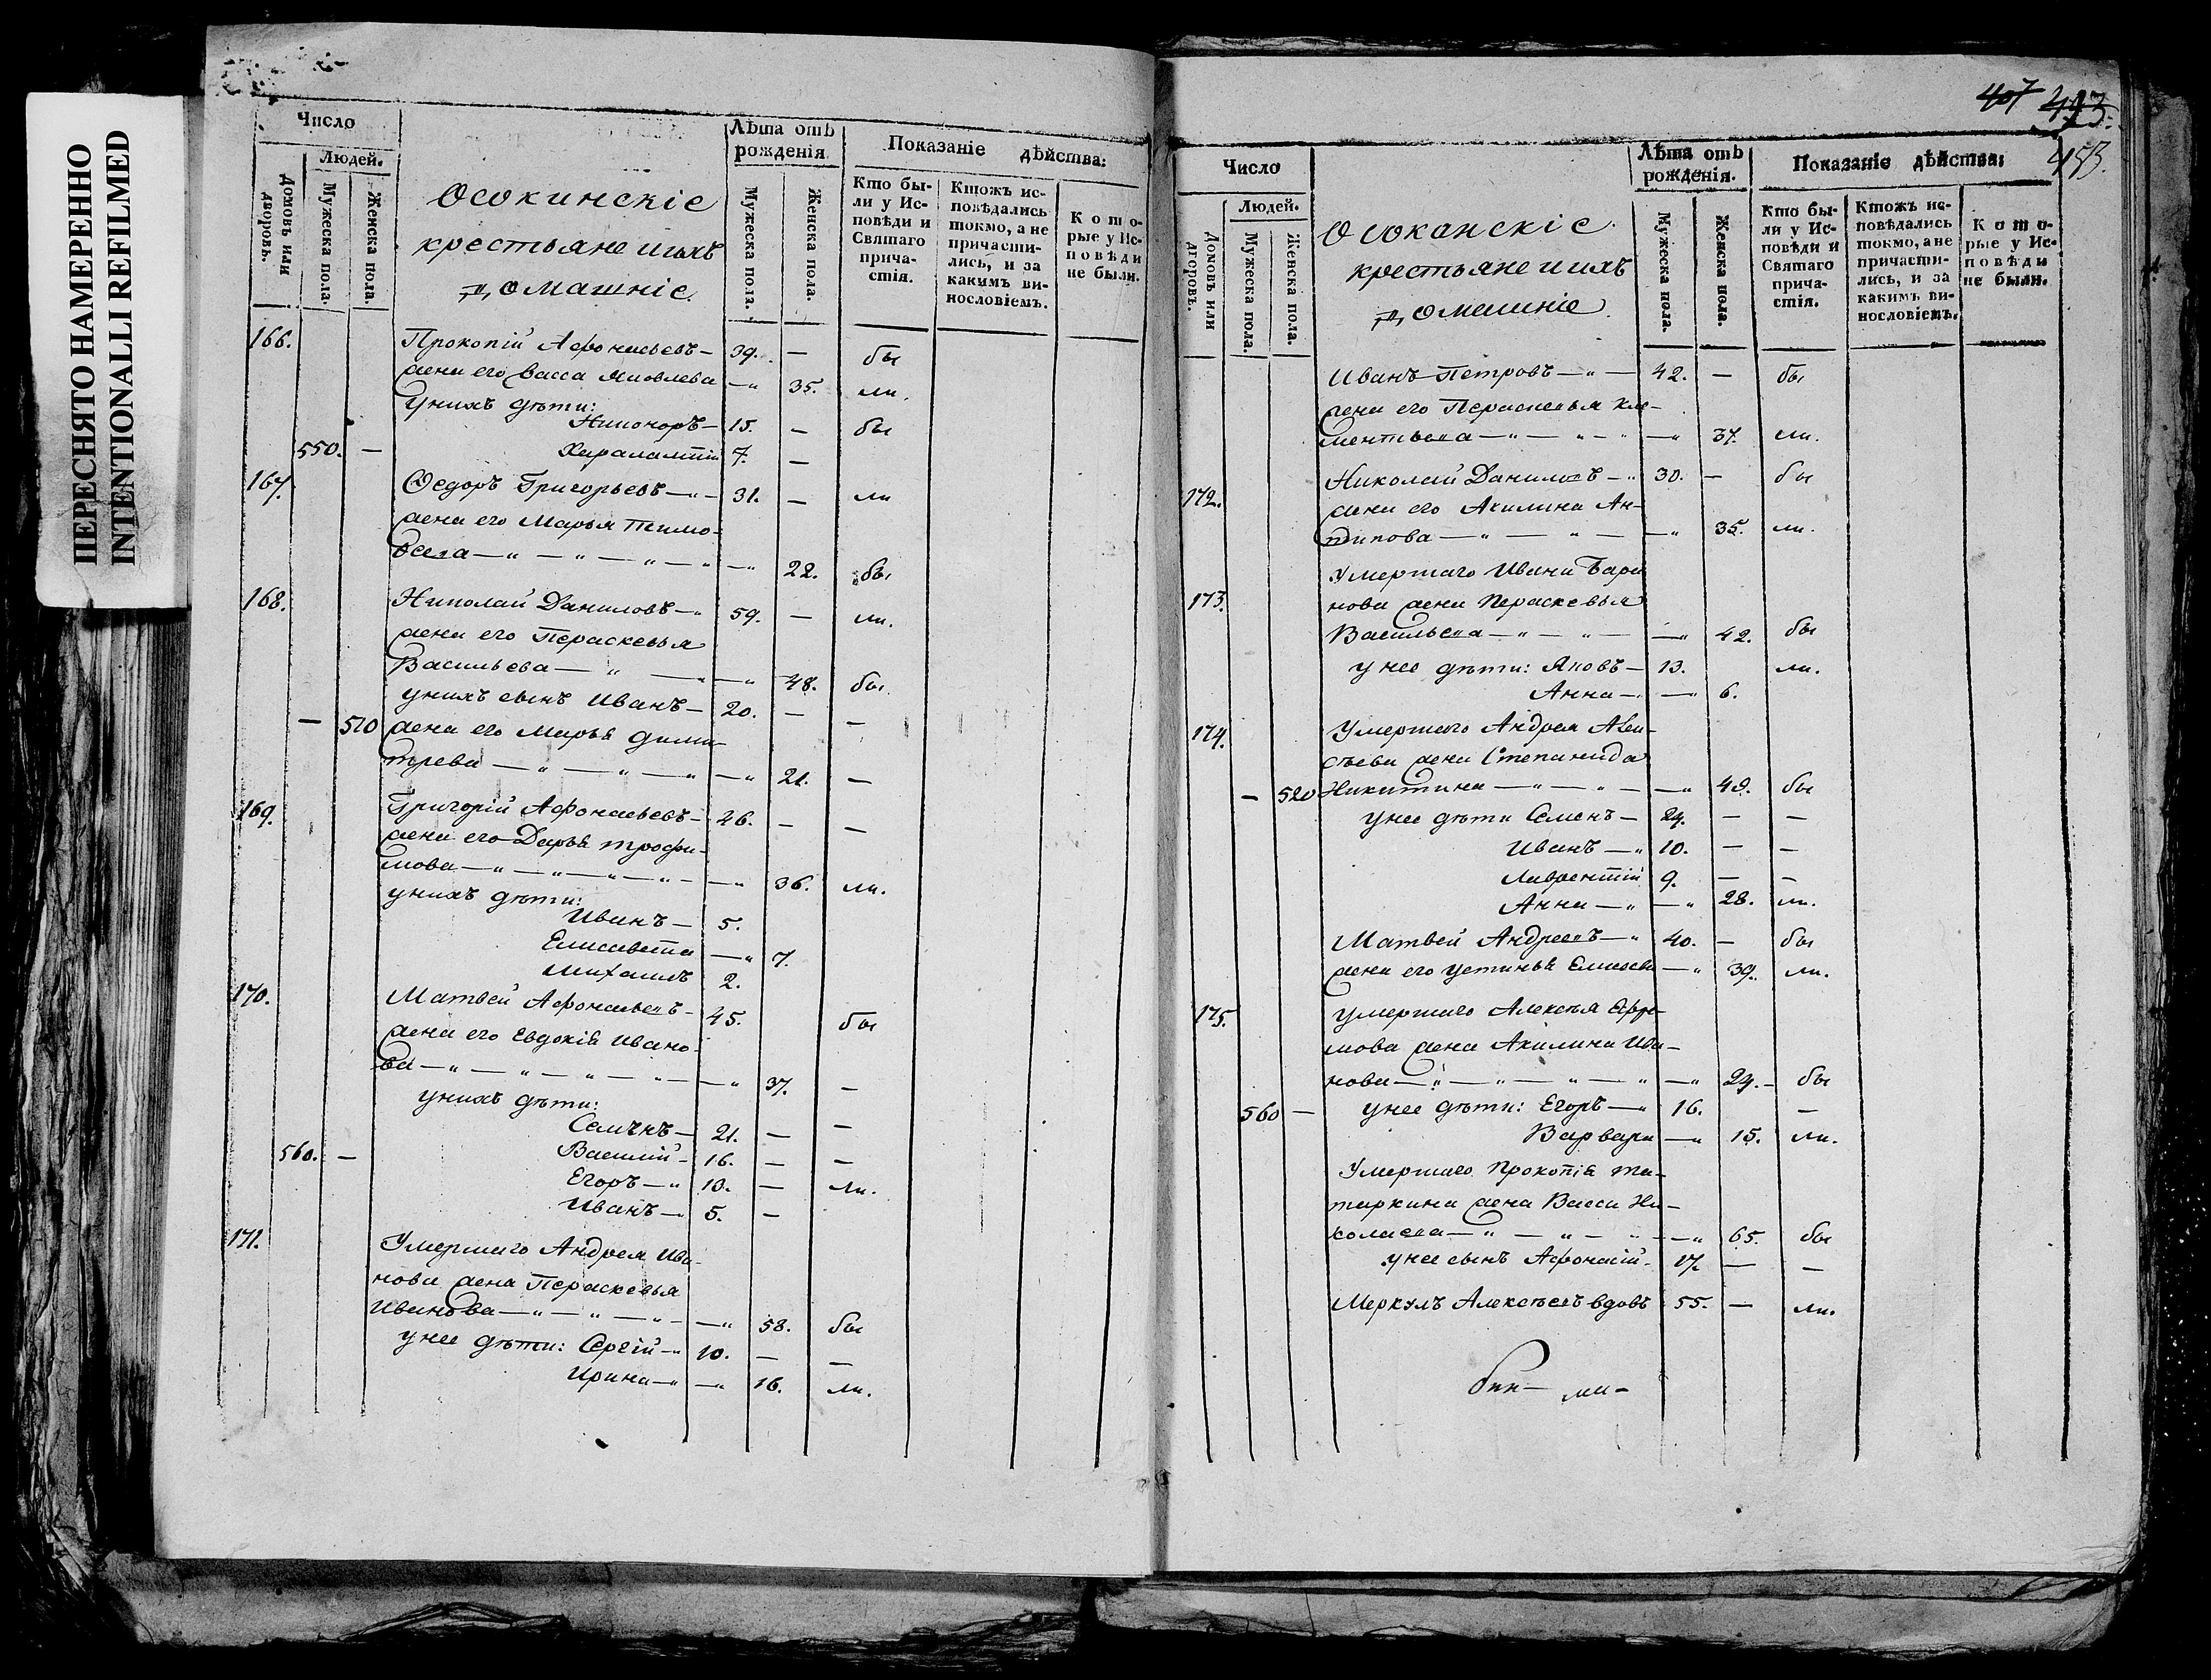 ПЕРЕСНЯТО НАМЕРЕННО
INTENTIONALLI REFILMED
Число
Людей.
Домовъ или дворовъ.
Мужеска пола.
Женска пола.
Осокинскіе
крестьяне и ихъ
домашніе.
Лѣта отъ рожденія
Мужеска пола.
Женска пола.
Показаніе дѣйства:
Кто бы-
ли у Ис-
повѣди и
Святаго
прича-
стія.
Ктожъ ис-
повѣдались
токмо, а не
причасти-
лись, и за
какимъ ви-
нословіемъ.
Кото-
рые у Ис-
повѣди
не были.
166. Прокопій Афонасьевъ — 39. — бы
жена его Васса Яковлева — 35. ли.
У нихъ дѣти:
Никоноръ — 15. — бы
550. — Харалампій 7. —
167. Ѳедоръ Григорьевъ — 31. — ли
жена его Марья Тимо-
ѳеева — " — " — " — 22. бы
168. Николай Даниловъ — 59. — ли.
жена его Пераскевья
Васильева — " — 48. бы.
у нихъ сынъ Иванъ — 20. — —
— 510 жена его Марья Дими-
трева — " — " — " — 21. —
169. Григорій Афонасьевъ — 26. — —
жена его Дарья Трофи-
мова — " — " — " — 36. ли.
у нихъ дѣти:
Иванъ — 5.
Елисавета — 7.
Михаилъ 2.
170. Матвей Афонасьевъ — 45. бы
жена его Евдокія Ивано-
ва — " — " — " — " — 37. —
у нихъ дѣти:
Семенъ — 21. — —
560. — Василій — 16. — —
Егоръ — 13. — ли.
Иванъ — 5. —
171. Умершаго Андрея Ива-
нова жена Пераскевья
Иванова — " — " — " — 58. бы
у нее дѣти: Сергій — 10. — —
Ирина — — 16. ли.
407 493.
453.
Число
Людей.
Домовъ или дворовъ.
Мужеска пола.
Женска пола.
Осоканскіе
крестьяне и ихъ
домашніе.
Лѣта отъ
рожденія.
Мужеска пола.
Женска пола.
Показаніе дѣйства:
Кто бы-
ли у Ис-
повѣди и
Святаго
прича-
стія.
Ктожъ ис-
повѣдались
токмо, а не
причасти-
лись, и за
какимъ ви-
нословіемъ.
Кото-
рые у Ис-
повѣди
не были.
Иванъ Петровъ — " — 42. — бы
жена его Пераскевья Кле-
ментьева — " — " — " — 37. ли.
172. Николай Даниловъ — " 30. — бы
жена его Акилина Ан-
типова — " — " — — " 35. ли.
173. Умершаго Ивана Бари
нова жена Пераскевья
Васильева — " — " — — " 42. бы
у нее дѣти: Яковъ — 13. ли.
Анна — — 6.
174. Умершаго Андрея Авви-
съева жена Степанида
— 520 Никитина — " — " — — " 49. бы
у нее дѣти Семенъ — 29. — —
Иванъ — " 10. — —
Лаврентій 9. — —
Анна — " — " 28. ли.
Матвей Андреевъ — " 40. — бы
жена его Устинья Елисеева — " 39. ли.
175. Умершаго Алексѣя Ефре-
мова жена Акилина Ива-
нова — " — " — " — " — " 29. — бы
560 — у нее дѣти: Егоръ — " 16. —
Варвара — " 15. ли.
Умершаго Прокопія Та-
таркина жена Васса Ни-
колаева — " — " — " — " 65. бы
у нее сынъ Афонасій — 17. — —
Меркулъ Алексѣевъ вдовъ 55. — ли.